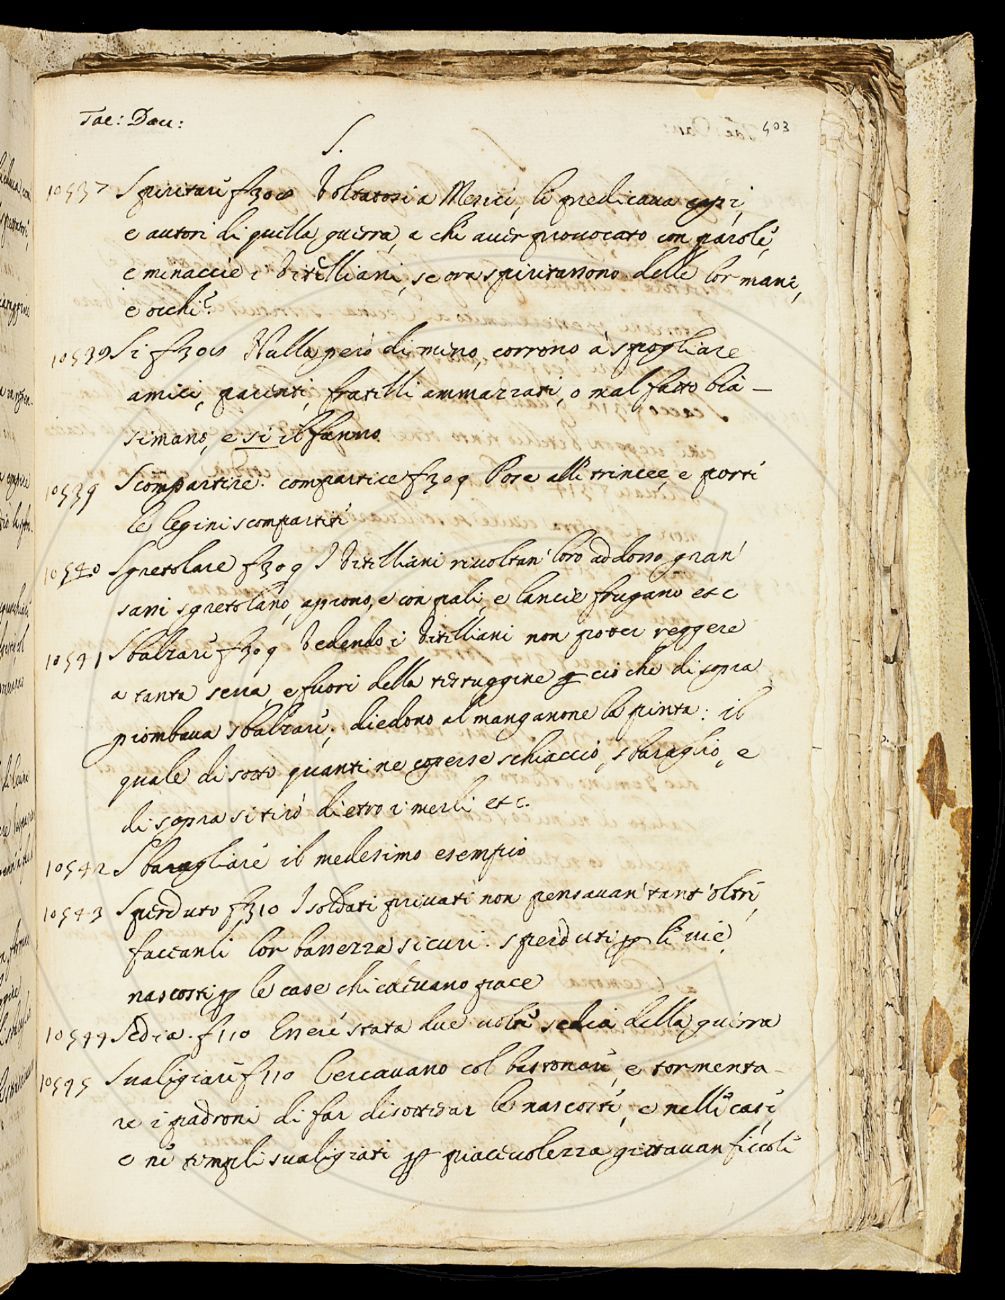 Tac: Dau:
403
S.
10537 Spiritare f 308 Voltatosi a Menici, li predicaua capi,
e autori di quella guerra, a chè auer prouocato con parole,
e minaccie i Vitelliani, se ora spiritassono delle lor mani,
e occhi?
10538 Si f 308 Nulla però di meno, corrono à spogliare
amici, parenti, fratelli ammazzati, o mal fatto bia-
simano, e si il fanno.
10539 Scompartire. compartire f 309 Pose alle trincee, e porte
le legini scompartite
10540 Sgretolare f 309 I Vitelliani riuoltan' loro addosso gran'
sassi sgretolano, aprono, e con pali, e lancie frugano etc
10541 Sbalzare f 309 Vedendo i Vitelliani non poter reggere
a tanta serra, e fuori della testuggine p ciò che di sopra
piombaua sbalzare, diedono al manganone la pinta: il
quale di sotto quanti ne coperse schiacciò, sbaragliò, e
di sopra si tirò dietro i merli etc.
10542 Sbaragliare il medesimo esempio
10543 Sperduto f 310 I soldati priuati non pensauan' tant'oltre,
faccanli lor bassezza sicuri. sperduti p le uie,
nascosti p le case chiedeuano pace
10544 Sedia. f 110 En era stata due uolte sedia della guerra
10545 Sualigiare f 110 Cercauano col bastonare, e tormenta-
re i padroni di far disotterrar le nascoste, e nelle case,
e ne templi sualigiati p piaceuolezza gittauan fiecole